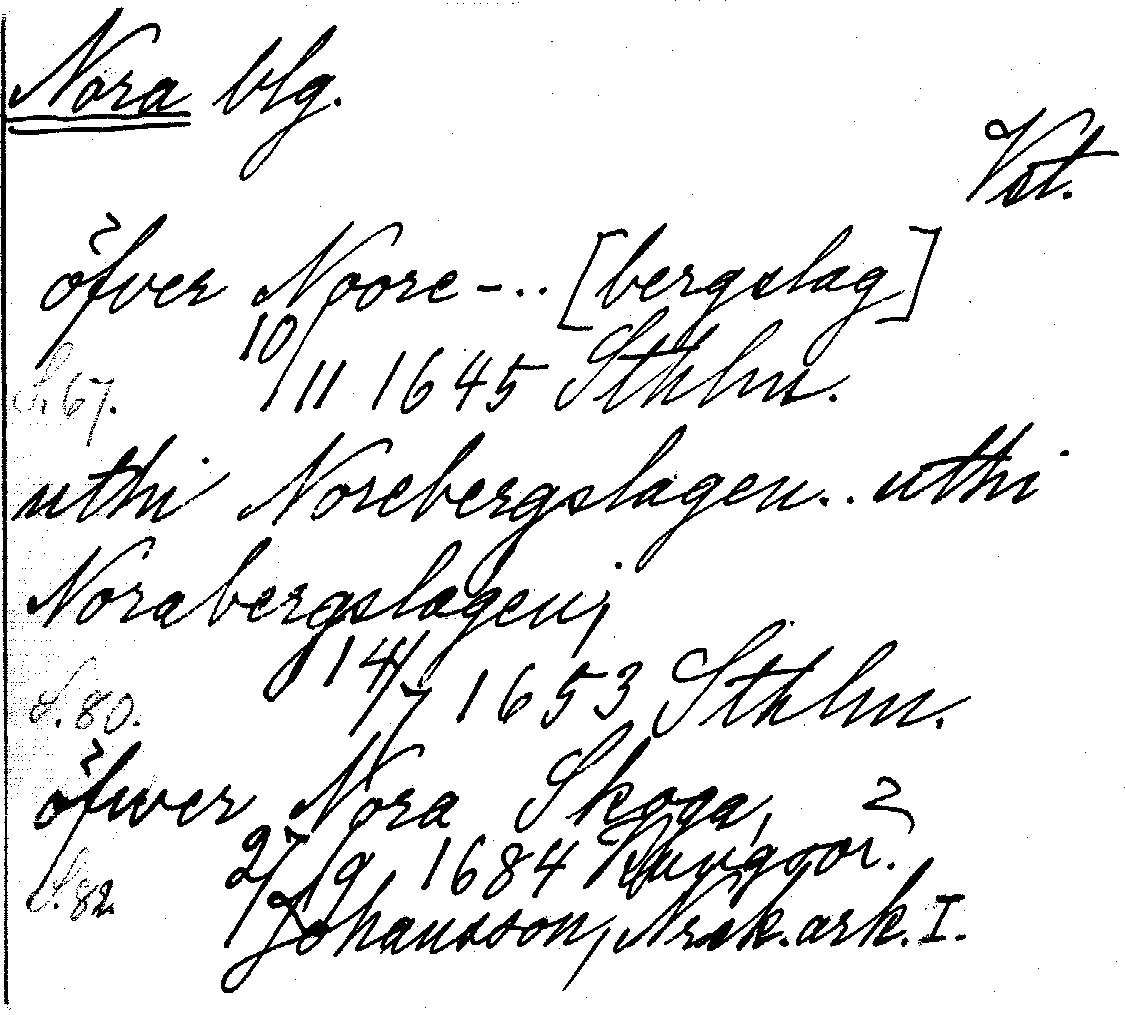 Nora blg.
Vst.
öfver Noore-.. [bergslag]
S. 67. 10/11 1645 Sthlm.
uthi Norebergslagen.. uthi
Norabergslagen;
S. 80. 14/7 1653 Sthlm.
öfwer Nora Skoga,
S. 82. 27/9 1684 Kungsör.
Johansson, Nrsk. ark. I.